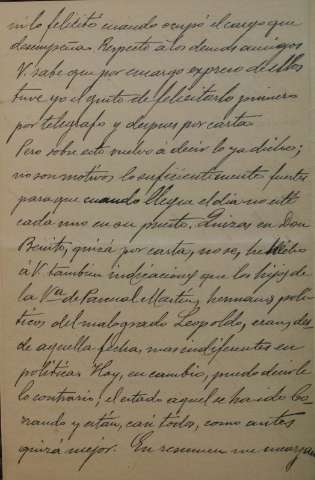 ni lo felicitó cuando ocupó el cargo que
desempeña. Respecto á los demás amigos
V. sabe que por encargo expreso de ellos
tuve yo el gusto de felicitarlo primero
por telégrafo y despues por carta.
Pero sobre esto vuelvo á decir lo ya dicho;
no son motivos lo suficientemente fuertes
para que cuando llegue el día no esté
cada uno en su puesto. Quizás en Don
Benito, quizá por carta, no se,
á V. tambien indicaciones que los hijos de
la Vda de Pascual Martín, hermanos polí-
ticos del malogrado Leopoldo, eran, des-
de aquella fecha, mas indiferentes en
política. Hoy, en cambio, puedo decirle
lo contrario; el estado aquel se ha ido bo-
rrando y están, casi todos, como antes
quizá mejor. En resumen me encargan